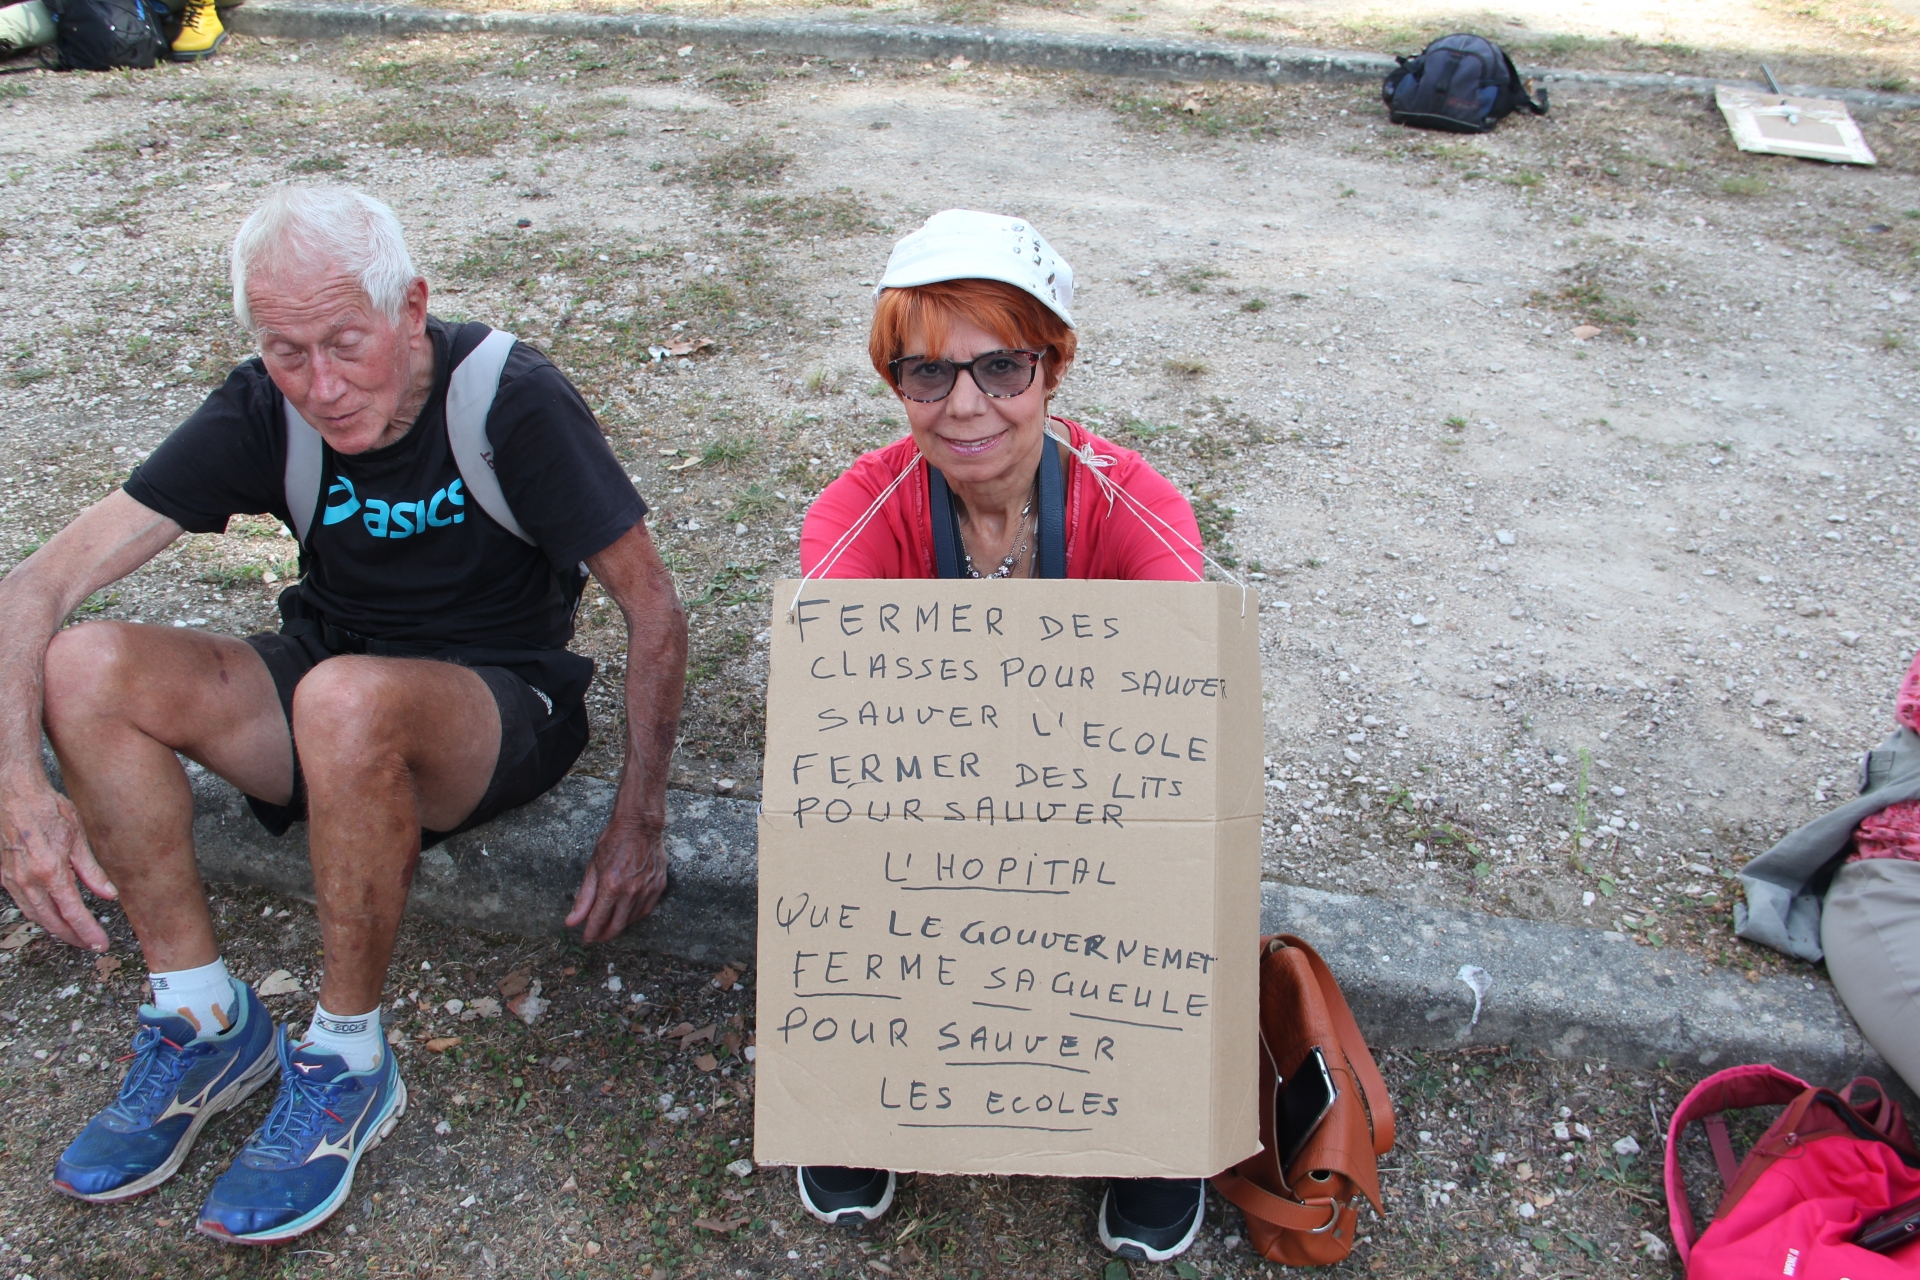 asics
FERMER DES
CLASSES POUR SAUVER
SAUVER L'ECOLE
FERMER DES LITS
POUR SAUVER
L'HOPITAL
QUE LE GOUVERNEMET
FERME SA GUEULE
POUR SAUVER
LES ECOLES